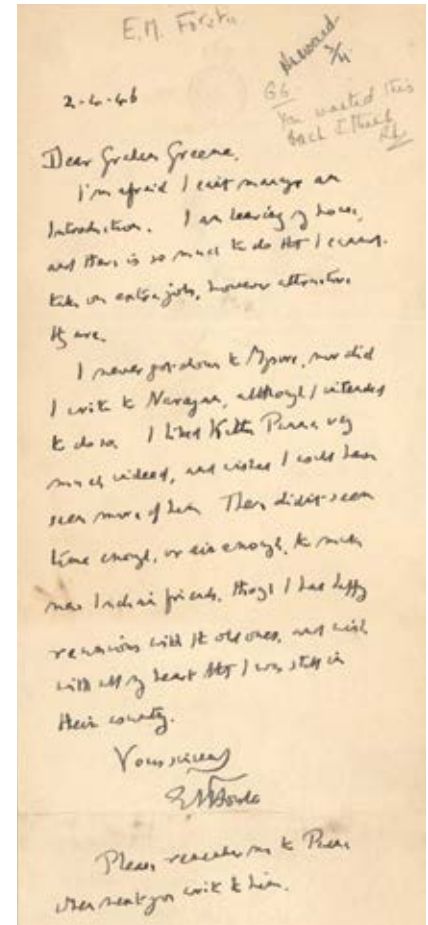 E.M. Forster
Answered
3/4
2-4-46
GG
You wanted this
back I think
Dear Graham Greene,
I'm afraid I can't manage an
Introduction. I am leaving my house,
and there is so much to do that I cannot
take on extra jobs, however attractive
they are.
I never got down to Mysore, nor did
I write to Narayan, although I intended
to do so. I liked Purna very
much indeed, and wished I could have
seen more of him. There didn't seem
time enough, or air enough, to make
new Indian friends, though I had happy
reunions with the old ones, and wish
with all my heart that I was still in
their country.
Yours sincerely
EMForster
Please remember me to Purna
when next you write to him.